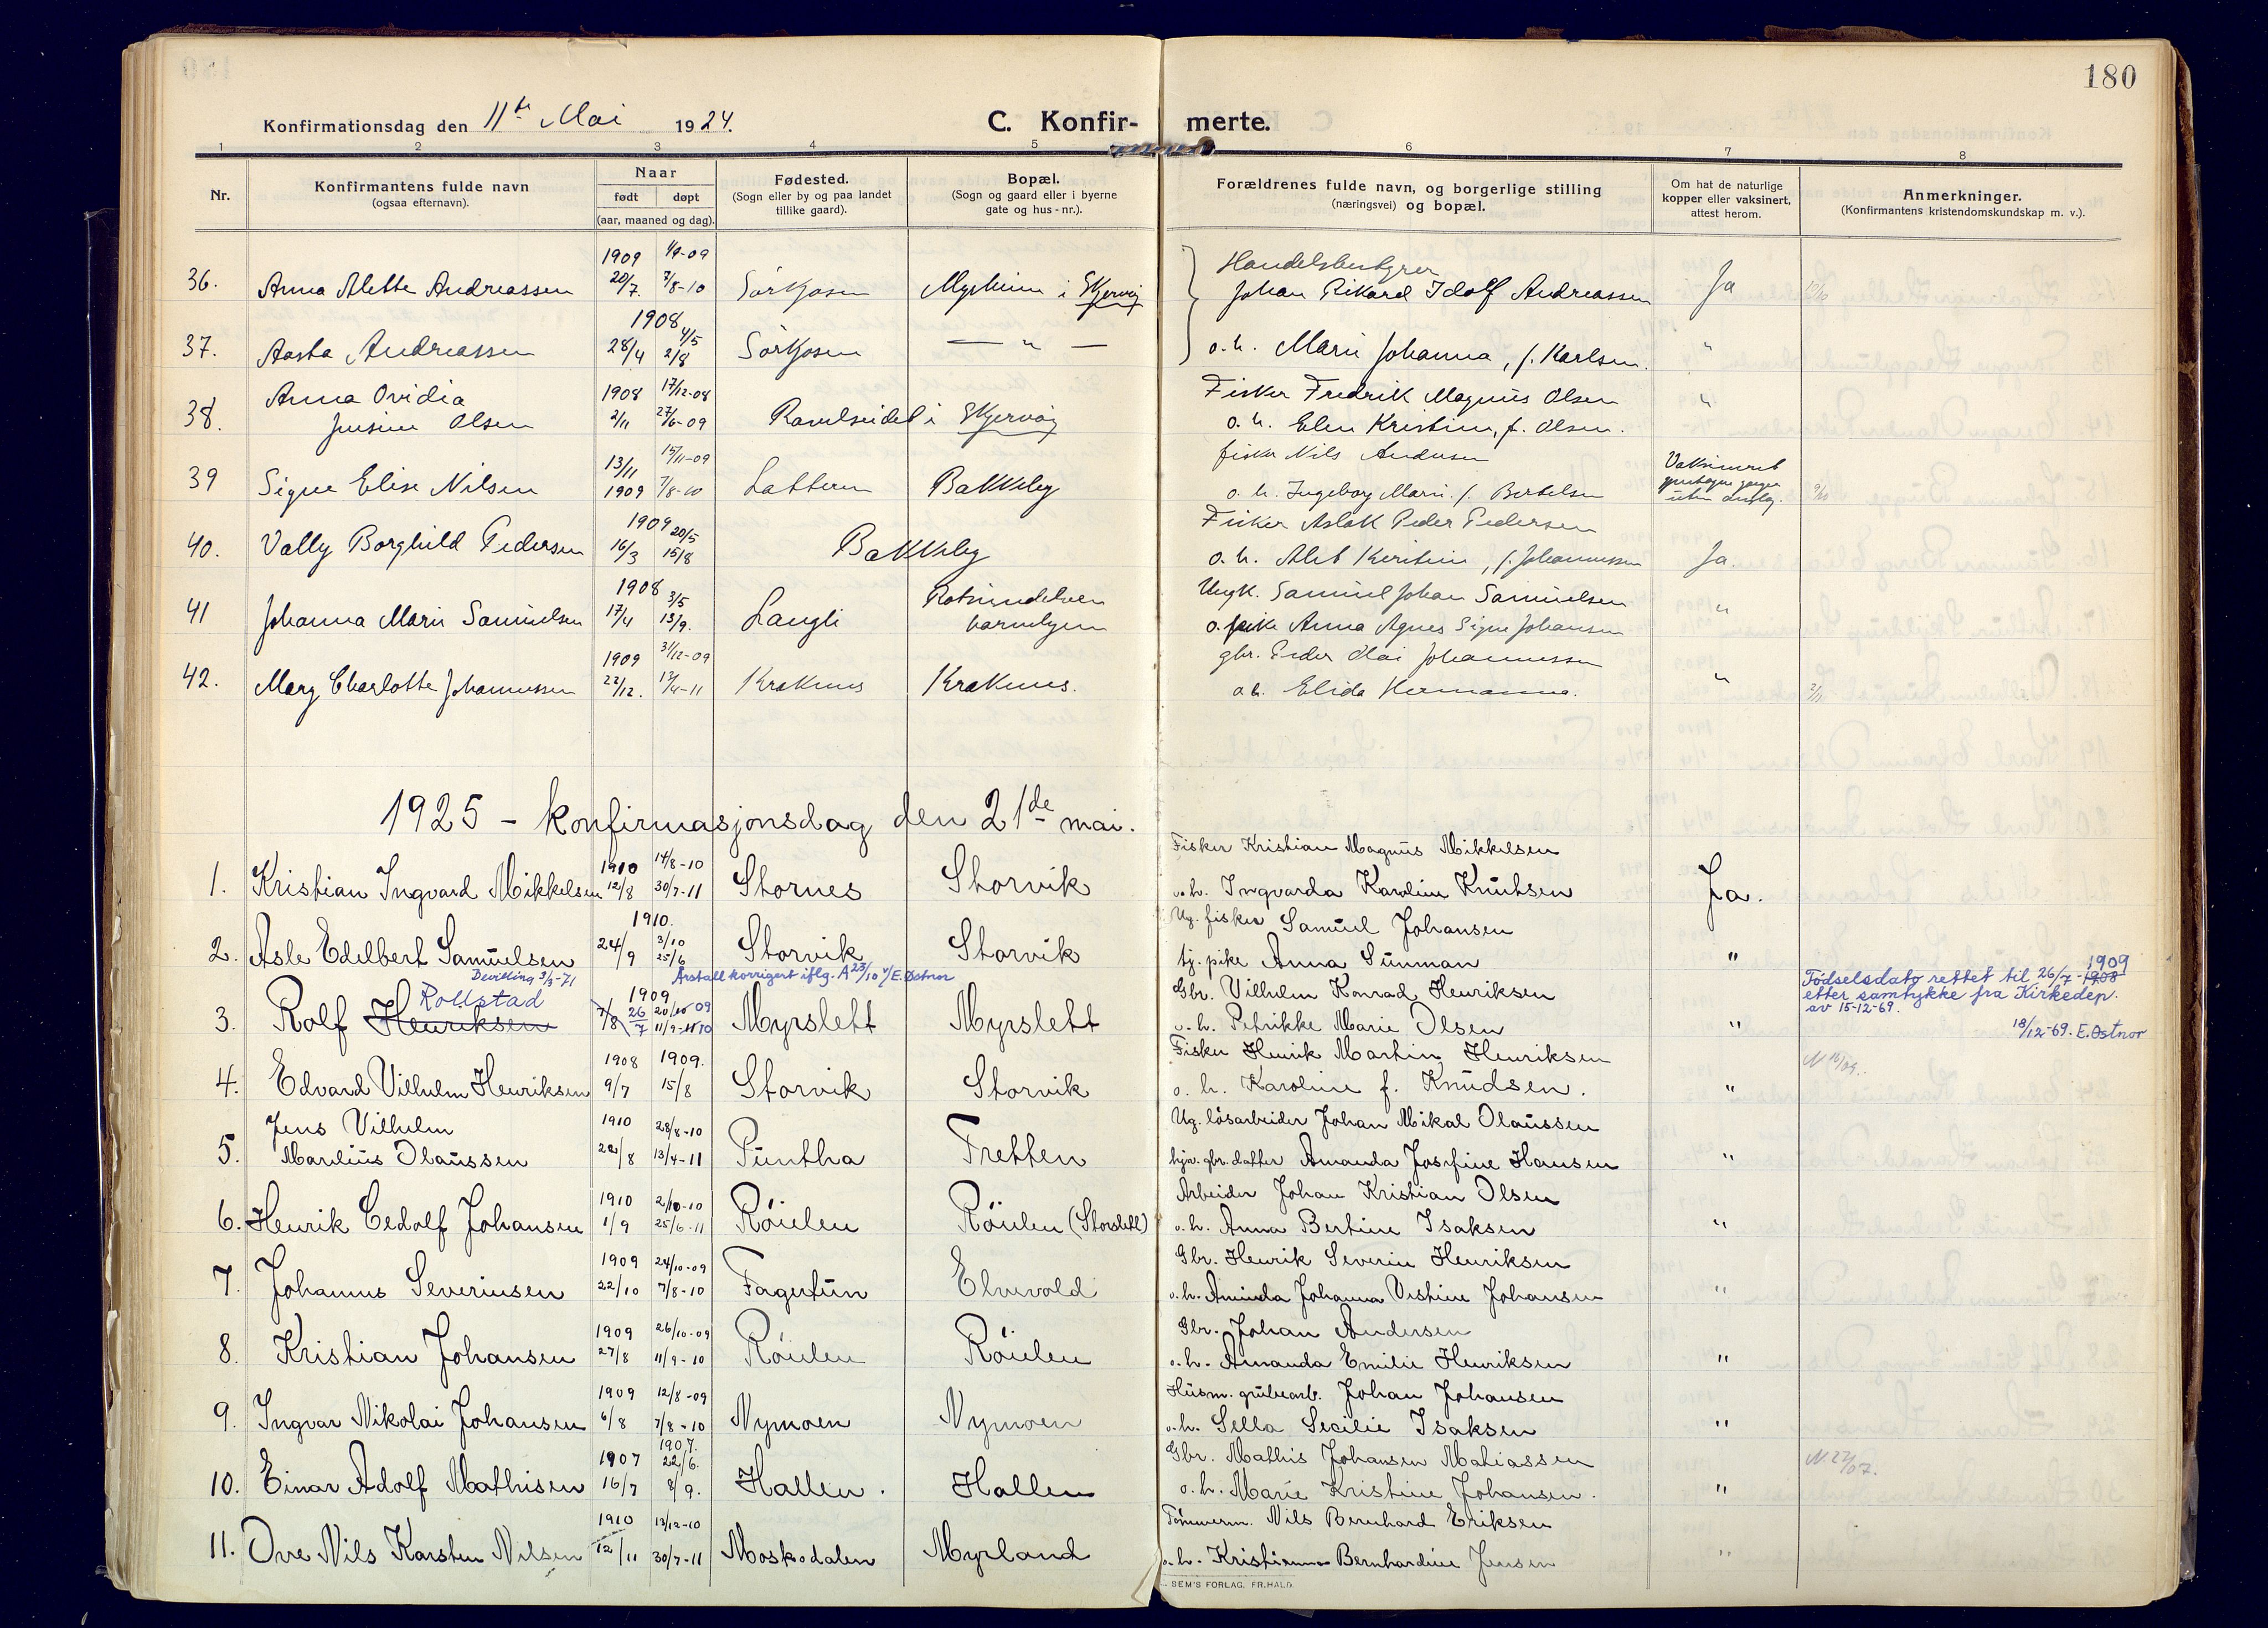 180
Konfirmationsdag den 11te Mai 1924.
C. Konfir- merte.
1 2 3 4 5 6 7 8
Nr.
Konfirmantens fulde navn
(ogsaa efternavn).
Naar
født døpt
(aar, maaned og dag).
Fødested.
(Sogn eller by og paa landet
tillike gaard).
Bopæl.
(Sogn og gaard eller i byerne
gate og hus-nr.).
Forældrenes fulde navn, og borgerlige stilling
(næringsvei) og bopæl.
Om hat de naturlige
kopper eller vaksinert,
attest herom.
Anmerkninger.
(Konfirmantens kristendomskundskap m. v.).
1909 1/9-09 Handelsbestyrer
36. Anna Alette Andreassen 20/7. 7/8-10 Sørkjosen i Skjervøy Johan Rikard Idolf Andreassen Ja
1908 4/5
37. Aasta Andreassen 28/4 2/8 Sørkjosen — " — o. h. Marie Johanna, f. Karlsen. "
Anna Ovidia 1908 17/12-08 Fisker Fredrik Magnus Olsen "
38. Jensine Olsen 2/11 27/6-09 Ravelseidet i Skjervøy o. h. Elen Kristine, f. Olsen.
13/11 15/11-09 fisker Nils Andersen Vaksinert
39 Signe Elise Nilsen 1909 7/8-10 Latteren Bakkeby o. h. Ingeborg Marie f. Bertelsen uten anslag. 9/10
1909 20/5 Fisker Aslak Peder Pedersen
40. Vally Borghild Pedersen 16/3 15/8 Bakkeby o. h. Alet Kirstine, f. Johannessen Ja.
1908 3/5 Rotsundelven Ungk. Samuel Johan Samuelsen
41 Johanna Marie Samuelsen 17/4 13/9. Langli o. pike Anna Agnes Signe Johansen "
1909 31/12-09 gbr. Peder Olai Johannessen
42. Mary Charlotte Johannessen 22/12. 17/4-11 Krakenes Krakenes. o. h. Elida Hermanna. " 2/11
1925 - konfirmasjonsdag den 21de mai.
1910 14/8-10 Fisker Kristian Magnus Mikkelsen
1. Kristian Ingvard Mikkelsen 12/8 30/7-11 Stornes Storvik o. h. Ingvarda Karoline Knutsen Ja.
1910. 3/10 Ug. fisker Samuel Johansen
2. Asle Edelbert Samuelsen 24/9 25/6 Storvik Storvik tj. pike Anna Sunman "
Bevilling 9/3-71 Årstall korrigert iflg. A 23/10 v/E. Østnor
Rollstad 1909 20/10 09 Gbr. Vilhelm Konrad Henriksen Fødselsdato rettet til 26/7-1908 1909
3. Rolf Henriksen 7/8 26/7 11/9-11 10 Myrslett Myrslett o. h. Petrikke Marie Olsen " etter samtykke fra Kirkedep.
av 15-12-69.
18/12-69. E. Østnor
1908 1909. Fisker Henrik Martin Henriksen
4. Edvard Vilhelm Henriksen 9/7 15/8 Storvik Storvik o. h. Karoline f. Knudsen. "
Jens Vilhelm 1910 28/8-10 Ug. løsarbeider Johan Mikal Olaussen
5. Marelius Olaussen 22/8 13/4-11 Puntha Tretten hjv. gbr. datter Amanda Josefine Hansen "
1910 2/10-10 Arbeider Johan Kristian Olsen
6. Henrik Cedolf Johansen 1/9 25/6-11 Røielen Røielen (Storslett) o. h. Anna Bertine Isaksen "
1909 24/10-09 Gbr. Henrik Severin Henriksen
7. Johannes Severinsen 22/10 7/8-10 Fagertun Elvevold o. h. Aminda Johanna Ustine Johansen "
1909 26/10-09 Gbr. Johan Andersen
8. Kristian Johansen 27/8 11/9-10 Røielen Røielen o. h. Amanda Emilie Henriksen "
1909 12/8-09 Husm. grubearb. Johan Johansen
9. Ingvar Nikolai Johansen 6/8 7/8-10 Nymoen Nymoen o. h. Sella Secilie Isaksen "
1907 1907. 22/6. Gbr. Mathis Johansen Mathiassen N 22/07.
10. Einar Adolf Mathisen 16/7 8/9. Hallen. Hallen o. h. Marie Kristine Johansen. "
1910 13/12-10 Tømmerm. Nils Bernhard Eriksen
11. Ove Nils Karsten Nilsen 12/11 30/7-11 Moskodalen Myrland o. h. Kristianna Bernhardine Jensen "
SEM'S FORLAG, FR.HALD.